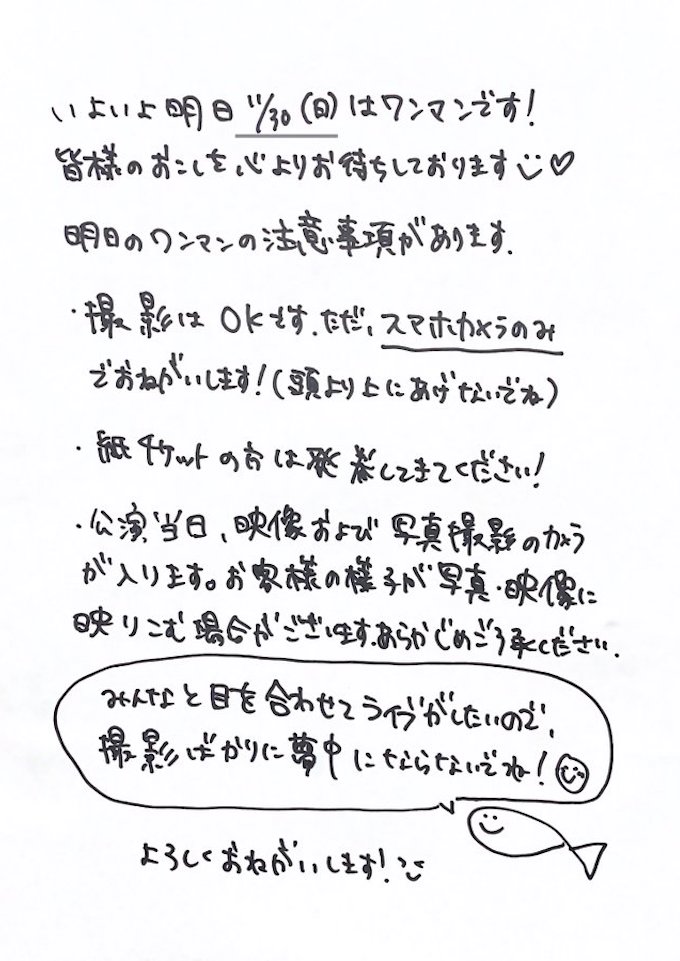 いよいよ明日 11/30 (日) はワンマンです!
皆様のおこしを心よりお待ちしております
明日のワンマンの注意事項があります.
・撮影はOKです.ただ、スマホカメラのみ
でおねがいします!(頭より上にあげないでね)
・紙チケットの方は発券してきてください!
・公演当日、映像および写真撮影のカメラ
が入ります。お客様の様子が写真・映像に
映りこむ場合がございます.あらかじめご了承ください.
みんなと目を合わせてライブがしたいので、
撮影ばかりに夢中にならないでね!
よろしくおねがいします!